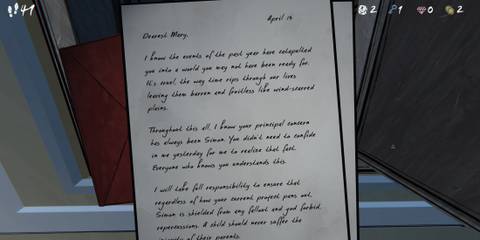 41
2
1
0
2
April 13
Dearest Mary,
I know the events of the past year have catapulted
you into a world you may not have been ready for.
It's cruel, the way time rips through our lives
leaving them barren and fruitless like wind-scarred
plains.
Throughout this all, I know your principal concern
has always been Simon. You didn't need to confide
in me yesterday for me to realize that fact.
Everyone who knows you understands this.
I will take full responsibility to ensure that
regardless of how your current project pans out,
Simon is shielded from any fallout and god forbid,
repercussions. A child should never suffer the
of their parents.